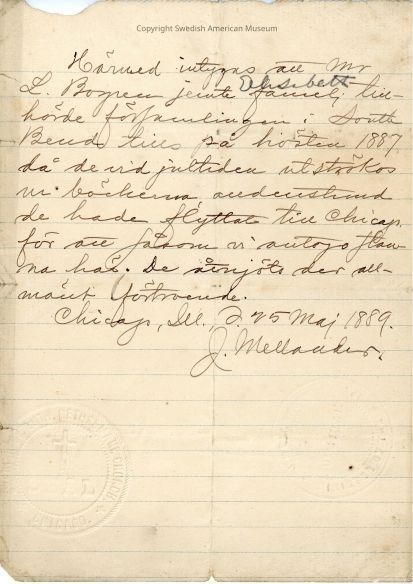 Copyright Swedish American Museum
Härmed intygas att Mr
L. Bogren jemte familj till-
Elisabett
hörde församlingen i South
Bend tills på hösten 1887
då de vid jultiden utströkos
ur böckerna, andenstund
de hade flyttat till Chicago
för att såsom vi antogo stan-
na här. De åtnjöto der all-
mänt förtroende.
Chicago, Ill. d. 25 Maj 1889.
J. Mellander.
CHICAGO